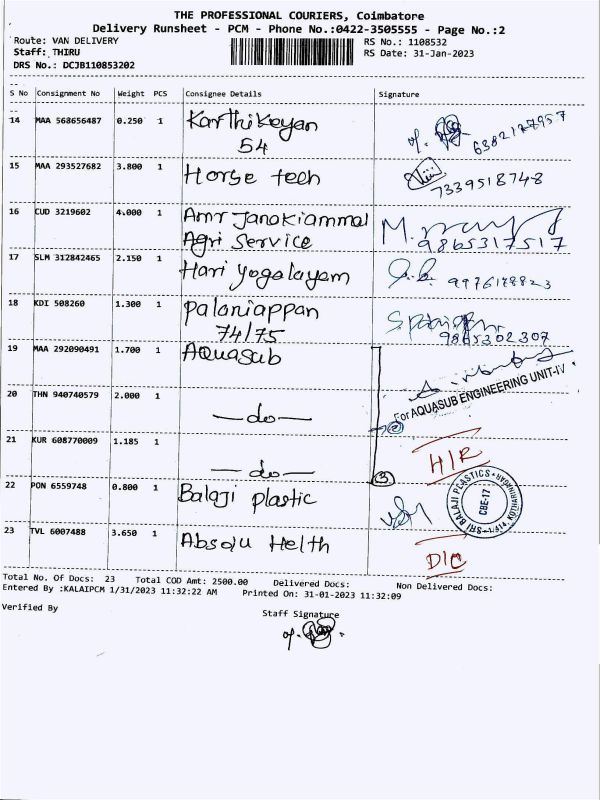 THE PROFESSIONAL COURIERS, Coimbatore
Delivery Runsheet - PCM - Phone No.:0422-3505555 - Page No.:2
Route: VAN DELIVERY RS No.: 1108532
Staff: THIRU RS Date: 31-Jan-2023
DRS No.: DCJB110853202
S No Consignment No Weight PCS Consignee Details Signature
14 MAA 568656487 0.250 1 Karthikeyan
54 6382127957
15 MAA 293527682 3.800 1 Horse tech
7339518748
16 CUD 3219602 4.000 1 Amr Janakiammal
Agri Service 9865317517
17 SLM 312842465 2.150 1 Hari yogalayam 9976178823
18 KDI 508260 1.300 1 Palaniappan
74/75 9865302307
19 MAA 292090491 1.700 1 Aquasub
For AQUASUB ENGINEERING UNIT-IV
20 THN 940740579 2.000 1 —do—
21 KUR 608770009 1.185 1 —do— H/R
3
22 PON 6559748 0.800 1 Balaji plastic
SRI BALAJI PCASTICS
CBE-17
23 TVL 6007488 3.650 1 Absolu Helth
D/C
Total No. Of Docs: 23 Total COD Amt: 2500.00 Delivered Docs: Non Delivered Docs:
Entered By :KALAIPCM 1/31/2023 11:32:22 AM Printed On: 31-01-2023 11:32:09
Verified By Staff Signature